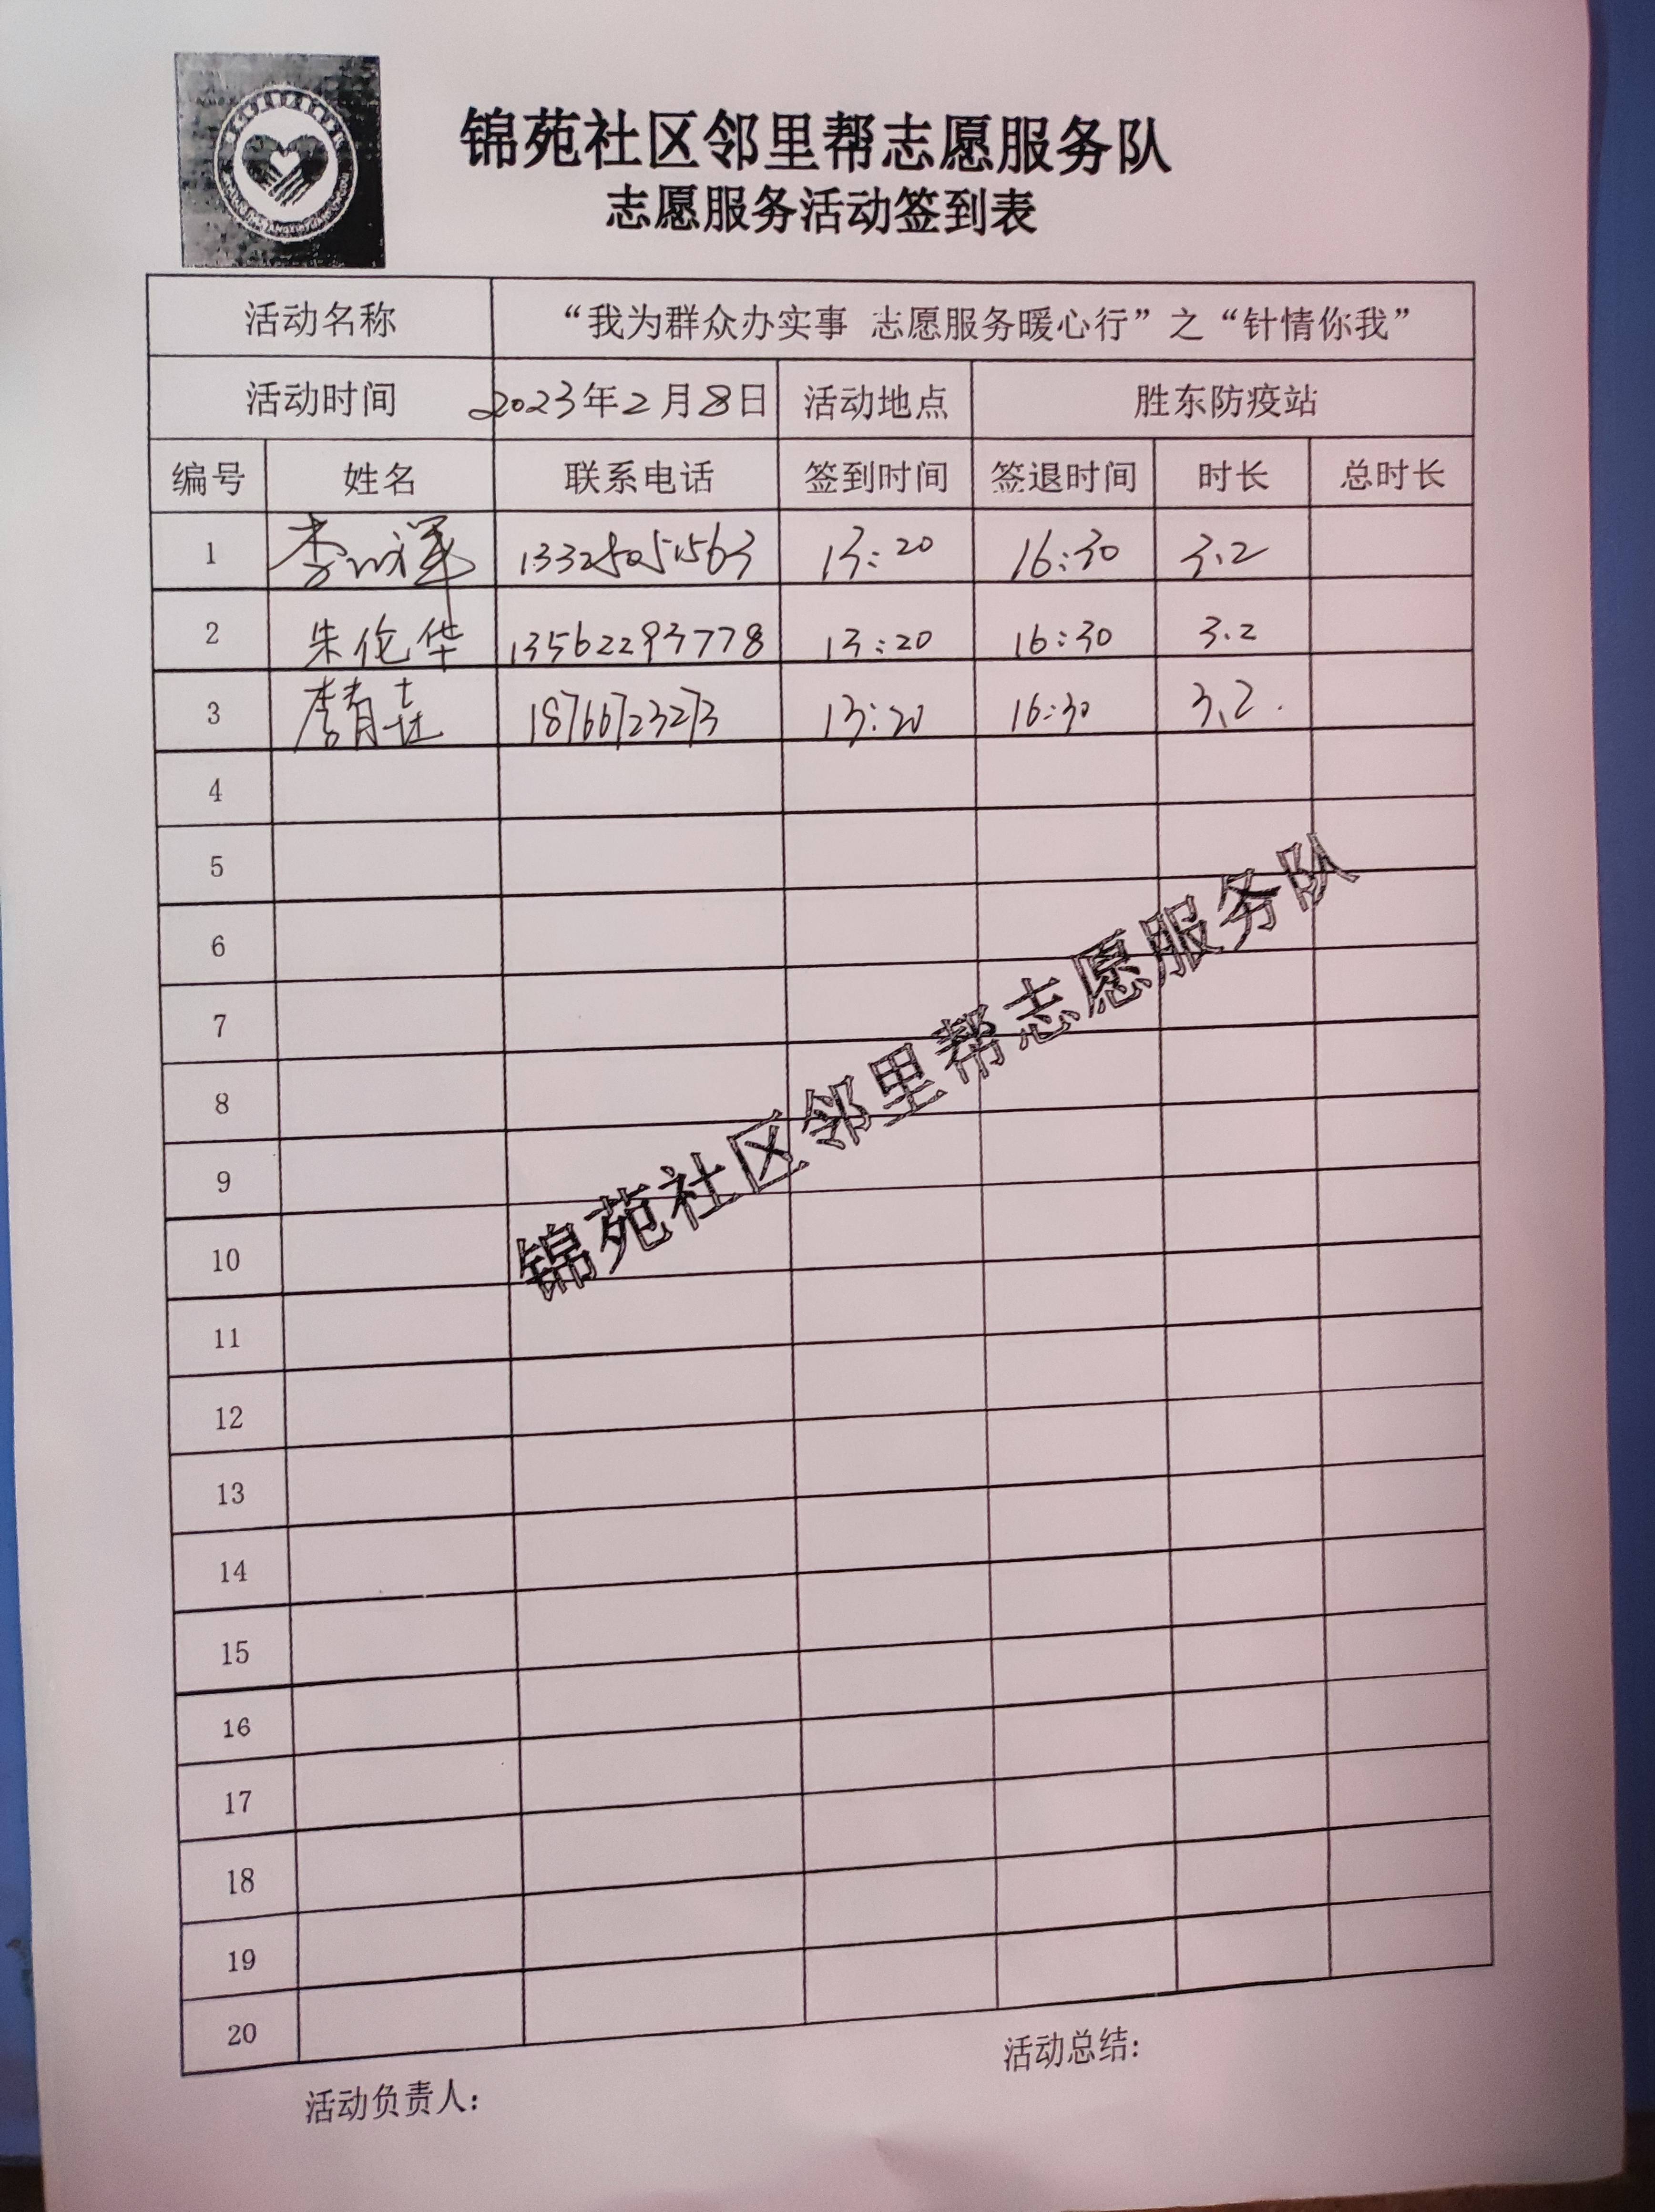 锦苑社区邻里帮志愿服务队
志愿服务活动签到表
活动名称 “我为群众办实事 志愿服务暖心行”之“针情你我”
活动时间 2023年2月8日 活动地点 胜东防疫站
编号 姓名 联系电话 签到时间 签退时间 时长 总时长
1 李 13325051563 13:20 16:30 3.2
2 朱伦华 13562293778 13:20 16:30 3.2
3 18766723273 13:20 16:30 3.2
4
5
6
7
8
9
10
11
12
13
14
15
16
17
18
19
20
锦苑社区邻里帮志愿服务队
活动负责人:
活动总结: